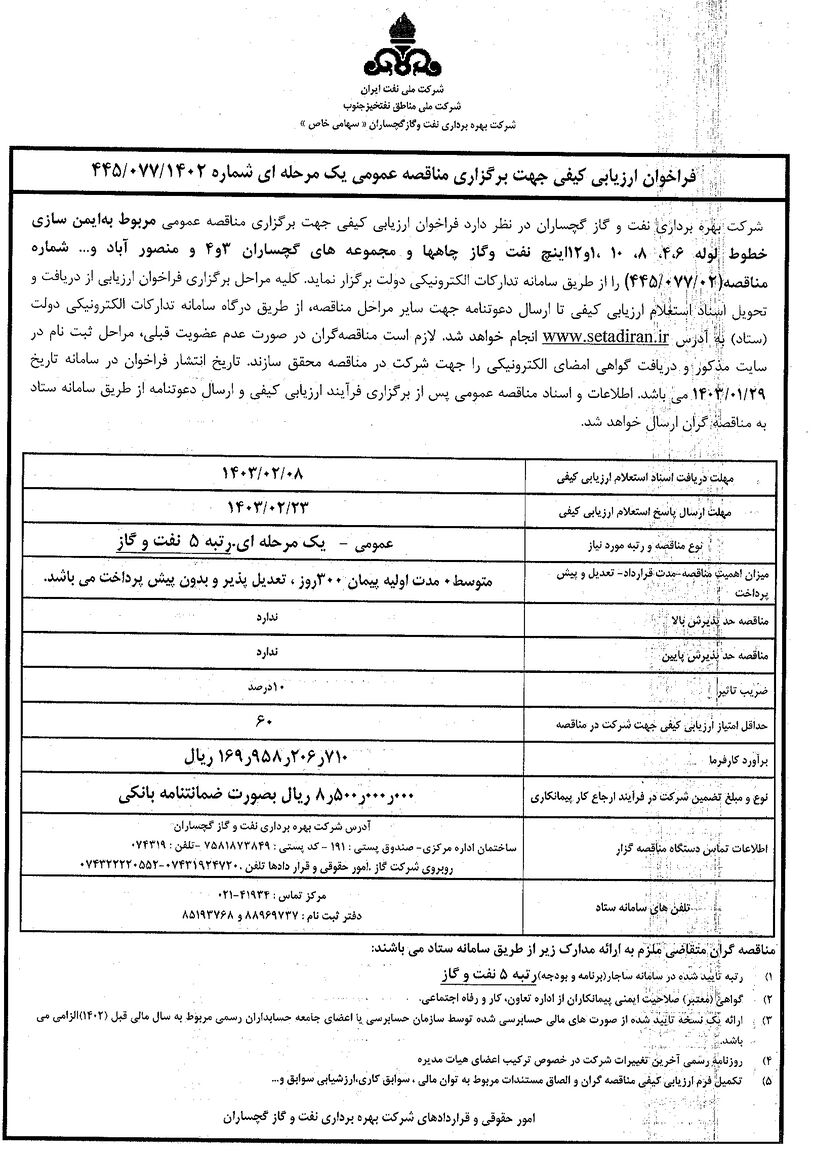 شرکت ملی نفت ایران
شرکت ملی مناطق نفتخیزجنوب
شرکت بهره برداری نفت وگازگچساران « سهامی خاص »
فراخوان ارزیابی کیفی جهت برگزاری مناقصه عمومی یک مرحله ای شماره ۴۴۵/۰۷۷/۱۴۰۲
شرکت بهره برداری نفت و گاز گچساران در نظر دارد فراخوان ارزیابی کیفی جهت برگزاری مناقصه عمومی مربوط به‌ایمن سازی
خطوط لوله ۴،۶، ۸، ۱۰ ،۱و۱۲اینچ نفت وگاز چاهها و مجموعه های گچساران ۳و۴ و منصور آباد و... شماره
مناقصه(۴۴۵/۰۷۷/۰۲) را از طریق سامانه تدارکات الکترونیکی دولت برگزار نماید. کلیه مراحل برگزاری فراخوان ارزیابی از دریافت و
تحویل اسناد استعلام ارزیابی کیفی تا ارسال دعوتنامه جهت سایر مراحل مناقصه، از طریق درگاه سامانه تدارکات الکترونیکی دولت
(ستاد) به آدرس www.setadiran.ir انجام خواهد شد. لازم است مناقصه‌گران در صورت عدم عضویت قبلی، مراحل ثبت نام در
سایت مذکور و دریافت گواهی امضای الکترونیکی را جهت شرکت در مناقصه محقق سازند. تاریخ انتشار فراخوان در سامانه تاریخ
۱۴۰۳/۰۱/۲۹ می باشد. اطلاعات و اسناد مناقصه عمومی پس از برگزاری فرآیند ارزیابی کیفی و ارسال دعوتنامه از طریق سامانه ستاد
به مناقصه گران ارسال خواهد شد.
مهلت دریافت اسناد استعلام ارزیابی کیفی ۱۴۰۳/۰۲/۰۸
مهلت ارسال پاسخ استعلام ارزیابی کیفی ۱۴۰۳/۰۲/۲۳
نوع مناقصه و رتبه مورد نیاز عمومی – یک مرحله ای.رتبه ۵ نفت و گاز
میزان اهمیت مناقصه-مدت قرارداد- تعدیل و پیش
پرداخت
متوسط۰ مدت اولیه پیمان ۳۰۰روز ، تعدیل پذیر و بدون پیش پرداخت می باشد.
مناقصه حد پذیرش بالا ندارد
مناقصه حد پذیرش پایین ندارد
ضریب تاثیر ۱۰درصد
حداقل امتیاز ارزیابی کیفی جهت شرکت در مناقصه ۶۰
برآورد کارفرما ۱۶۹ر۹۵۸ر۲۰۶ر۷۱۰ ریال
نوع و مبلغ تضمین شرکت در فرآیند ارجاع کار پیمانکاری ۸ر۵۰۰ر۰۰۰ر۰۰۰ ریال بصورت ضمانتنامه بانکی
اطلاعات تماس دستگاه مناقصه گزار
آدرس شرکت بهره برداری نفت و گاز گچساران
ساختمان اداره مرکزی- صندوق پستی : ۱۹۱ - کد پستی : ۷۵۸۱۸۷۳۸۴۹ -تلفن : ۰۷۴۳۱۹
روبروی شرکت گاز .امور حقوقی و قرار دادها تلفن .۰۷۴۳۱۹۲۴۷۲۰-۰۷۴۳۲۲۲۲۰۵۵۲
تلفن های سامانه ستاد
مرکز تماس : ۴۱۹۳۴-۰۲۱
دفتر ثبت نام : ۸۸۹۶۹۷۳۷ و ۸۵۱۹۳۷۶۸
مناقصه گران متقاضی ملزم به ارائه مدارک زیر از طریق سامانه ستاد می باشند:
۱) رتبه تایید شده در سامانه ساجار(برنامه و بودجه)رتبه ۵ نفت و گاز
۲) گواهی (معتبر) صلاحیت ایمنی پیمانکاران از اداره تعاون، کار و رفاه اجتماعی.
۳) ارائه یک نسخه تایید شده از صورت های مالی حسابرسی شده توسط سازمان حسابرسی یا اعضای جامعه حسابداران رسمی مربوط به سال مالی قبل (۱۴۰۲)الزامی می
باشد.
۴) روزنامه رسمی آخرین تغییرات شرکت در خصوص ترکیب اعضای هیات مدیره
۵) تکمیل فرم ارزیابی کیفی مناقصه گران و الصاق مستندات مربوط به توان مالی ، سوابق کاری،ارزشیابی سوابق و...
امور حقوقی و قراردادهای شرکت بهره برداری نفت و گاز گچساران